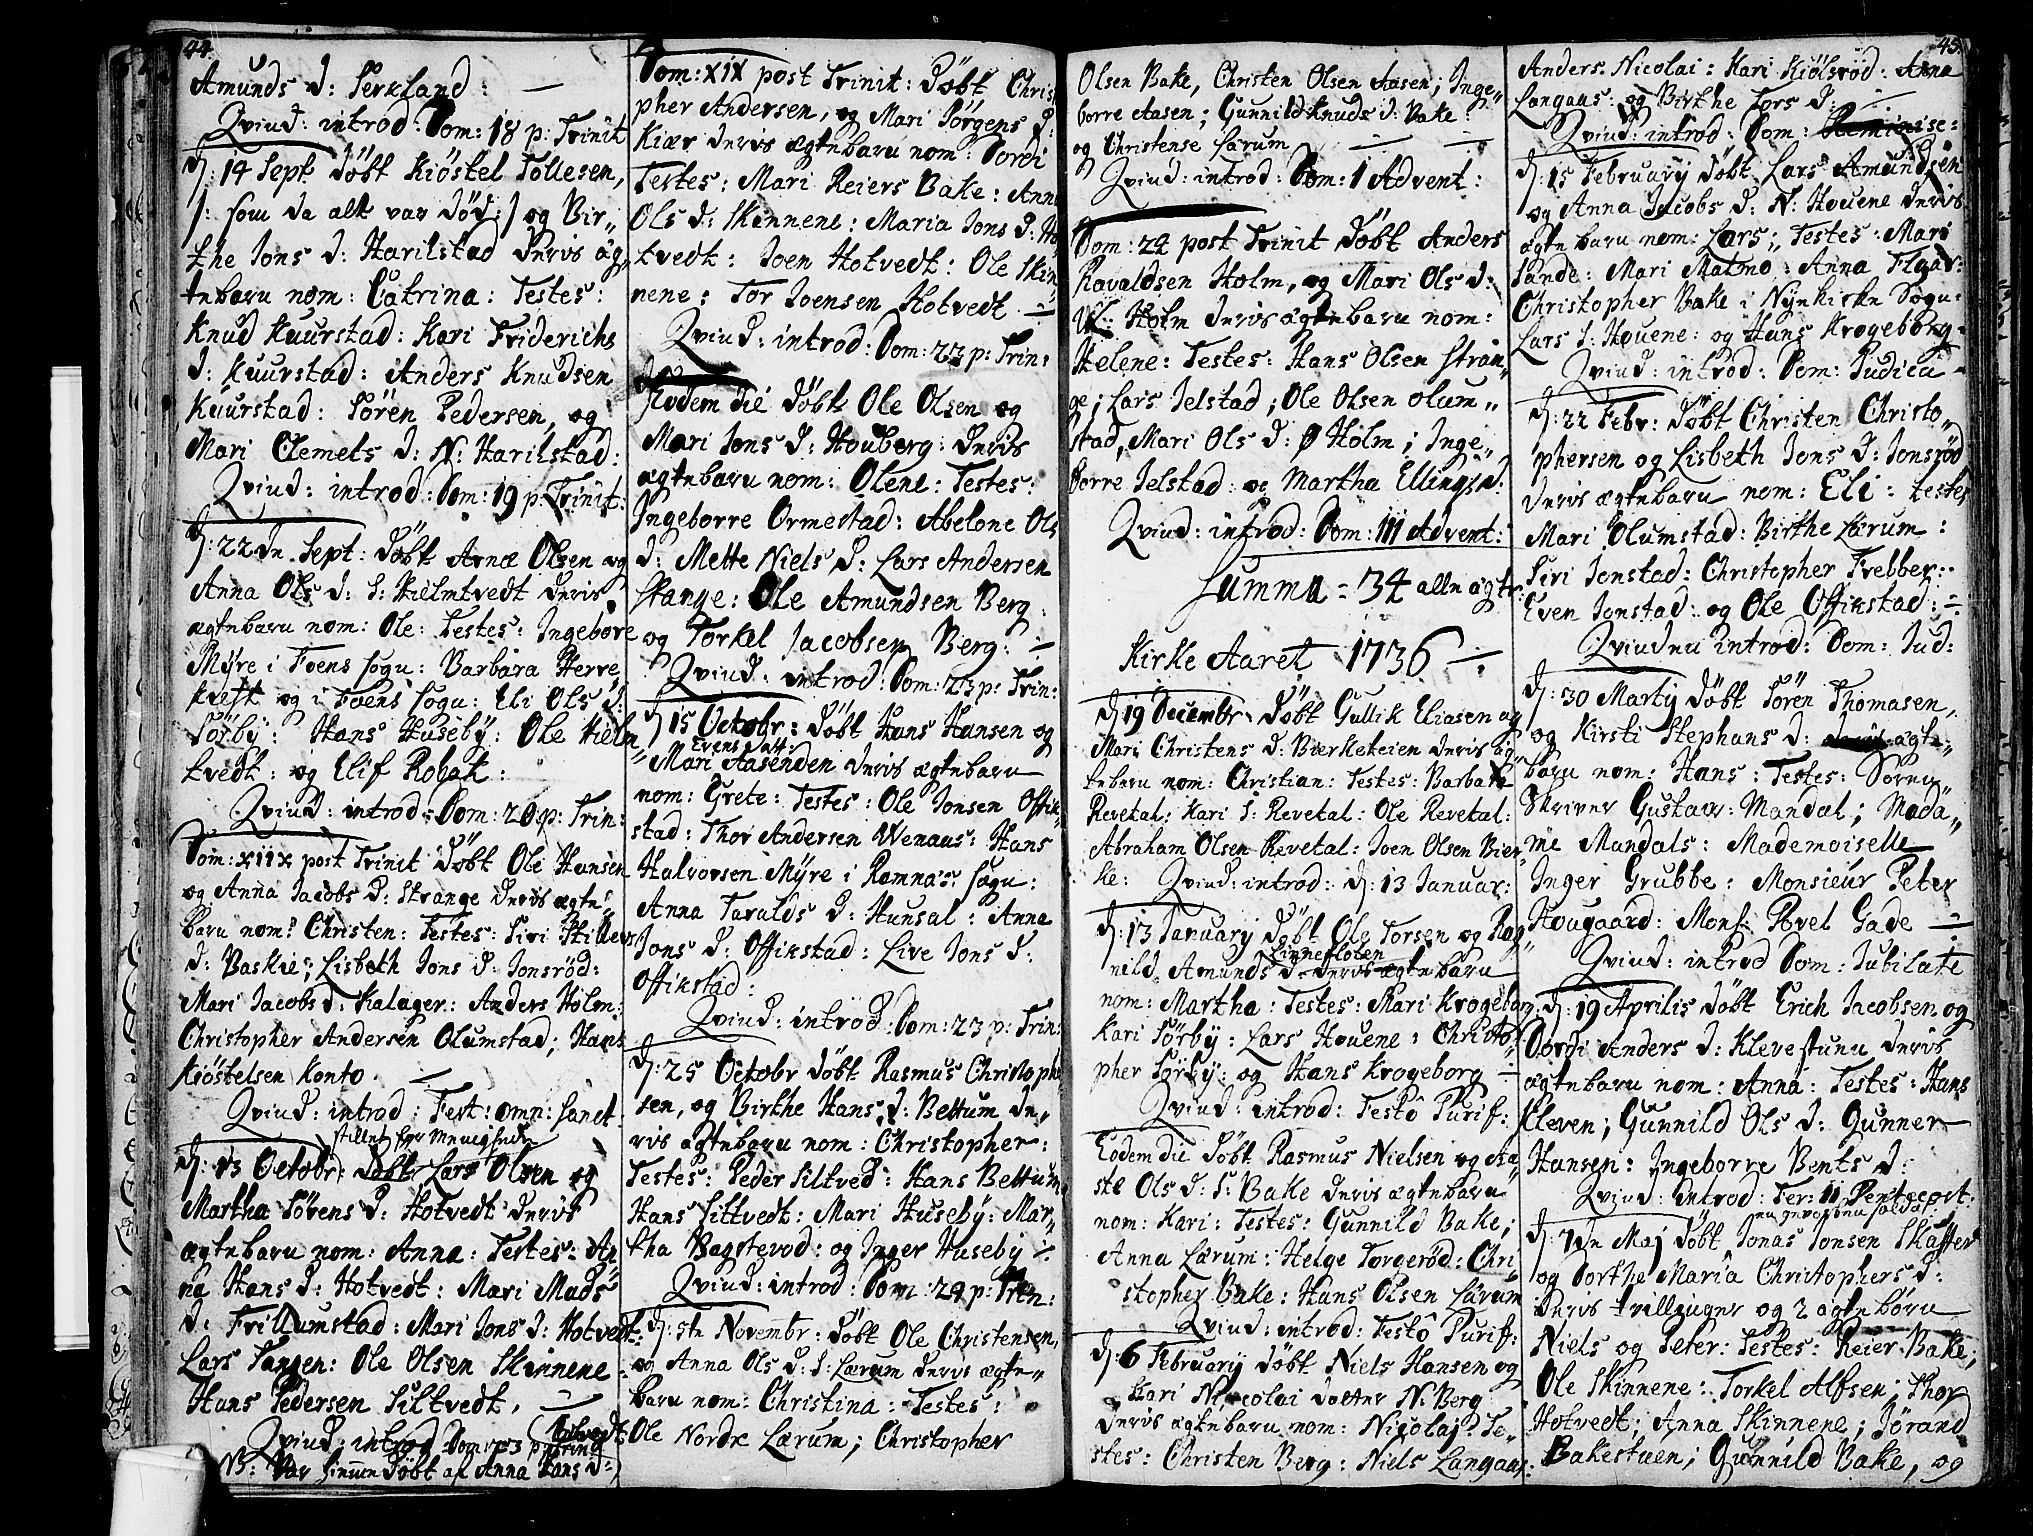 44.
Amunds d: Serkland: —
Qvind: introd: Dom: 18 p: Trinit
d: 14 Sept Döbt Kiöstel Tollesen,
/: som da alt var Död :/ og Bir„
the Jons d: Harilstad Deris æg„
tebarn nom: Catrina: Testes:
Knud Kuurstad: Kari Friderichs
d: Kuurstad: Anders Knudsen
Kuurstad: Sören Pedersen, og
Mari Clemets d: N: Harilstad:
Qvind: introd: Dom: 19 p: Trinit:
d: 22de Sept: Döbt Arne Olsen og
Anna Ols d: S: Hielmtvedt Deris
ægtebarn nom: Ole: Testes: Ingebore
Myre i Foens sogn: Barbara Herre„
kvest og i Foens sogn: Eli Ols d:
Sörby: Hans Huseby: Ole Hielm
tvedt: og Elif Robak:
Qvind: introd: Dom: 20 p: Trin:
Dom: XIIX post Trinit Döbt Ole Hansen
og Anna Jacobs d: Strange Deris ægte
barn nom: Christen: Testes: Siri Stillers
d: Baskie; Lisbeth Jons d: Jonsröd:
Mari Jacobs d: Kalager: Anders Holm:
Christopher Andersen Olumstad; Hans
Kiöstelsen Konto. —
Qvind: introd: Fest: omn: Sanct.
stillet for Menigheden
d: 13 Octobr: Döbt Lars Olsen og
Martha Sörens d: Hotvedt Deris
ægtebarn nom: Anna: Testes: An„
na Hans d: Hotvedt: Mari Mads
d: Frillumstad: Mari Jons d: Hotvedt:
Lars Sangen: Ole Olsen Skinnene
Hans Pedersen Siltvedt. —
Qvind: introd Dom: 23 p: trinit
NB: Var hiemme Döbt af Anna Hans d: Hotvedt
Dom: XIX post Trinit: Döbt Chris
pher Andersen, og Mari Jörgens d:
Kiær Deris ægtebarn nom: Dordi
Testes: Mari Reiers Bake: Anne
Ols d: Skinnene: Maria Jons d: Ho
tvedt: Joen Hotvedt: Ole Skin
nene: Tor Joensen Hotvedt. —
Qvind: introd: Dom: 22 p: Trin:
Eodem die Döbt Ole Olsen og
Mari Jons d: Houberg: Deris
ægtebarn nom: Olene: Testes:
Ingeborre Ormestad: Abelone Ols
d: Mette Niels d: Lars Andersen
Stange: Ole Amundsen Berg:
og Torkel Jacobsen Berg: —
Qvind: introd: Dom: 23 p: Trin:
d: 15 Octobr: Döbt Hans Hansen og
Evens datt:
Mari Aasenden Deris ægtebarn
nom: Grete: Testes: Ole Jonsen Offik„
stad: Thor Andersen Wenaas: Hans
Halvorsen Myre i Ramnæs sogn:
Anna Taralds d: Hunsal: Anna
Jons d: Offikstad: Live Jons d:
Offikstad:
Qvind: introd: Dom: 23 p: Trin:
d: 25 Octobr Döbt Rasmus Christophe
sen, og Birthe Hans d: Bettum De„
ris ægtebarn nom: Christopher:
Testes: Peder Siltved: Hans Bettum
Hans Sittvedt: Mari Huseby: Mar„
tha Bagstevod: og Inger Huseby —
Qvind: introd: Dom: 24 p: Trin:
d: 5te Novembr: Döbt Ole Christensen,
og Anna Ols d: S: Lærum Deris ægte„
barn nom: Christina: Testes:
Ole Nordre Lærum; Christopher
45.
Olsen Bake, Christen Olsen Aasen; Inge„
borre Aasen; Gunnild Knuds d: Bake:
og Christense Lærum — —
Qvind: introd: Dom: 1 Advent:
Dom: 24 post Trinit Döbt Anders
Ravaldsen Holm, og Mari Ols d:
Holm Deris ægtebarn nom:
Helene: Testes: Hans Olsen Stran„
ge; Lars Jelstad; Ole Olsen Olum„
stad, Mari Ols d: Ø Holm; Inge„
borre Jelstad: og Martha Ellings d:
Qvind: introd: Dom: III Advent:
Summa = 34 alle ægte:
Kirke Aaret 1736 —
d: 19 Decembr Döbt Gullik Eliasen og
Mari Christens d: Bierketeien Deris æg
tebarn nom: Christian: Testes: Barbara
Revetal: Kari S: Revetal: Ole Revetal:
Abraham Olsen Revetal: Joen Olsen Bier„
ke: Qvind: introd: d: 13 Januar:
d: 13 January Döbt Ole Torsen og Rag„
Linnefloten
nild Amunds d: Deris ægtebarn
nom: Martha: Testes: Mari Krogeborg
Kari Sörby: Lars Houene: Christo„
pher Sörby: og Hans Krogeborg —
Qvind: introd: Festo Purif:
Eodem die Döbt Rasmus Nielsen og Aa„
ste Ols d: S: Bake Deris ægtebarn
nom: Kari: Testes: Gunnild Bake;
Anna Lærum: Helge Torgeröd: Chri„
stopher Bake: Hans Olsen Lærum
Qvind: introd: Festo Purif:
d: 6 February Döbt Niels Hansen og
Kari Niccolai Dotter N: Berg
Deris ægtebarn nom: Nicolaj: Te„
stes: Christen Berg: Niels Langaas:
Anders: Nicolai: Kari Kiölsröd: Anna
Langaas: og Birthe Tors d: —
Qvind: introd: Dom: Reminise:
d: 15 February Döbt Lars Amundsen
og Anna Jacobs d: N: Houene Deris
ægtebarn nom: Lars; Testes: Mari
Sande: Mari Malmo: Anna Flaar:
Christopher Bake i Nykirke Sogn:
Lars S: Houene: og Hans Krogeborg —
Qvind: introd: Dom: Judica —
d: 22 Febr: Döbt Christen Christo„
phersen og Lisbeth Jons d: Jonsröd
Deris ægtebarn nom: Eli: testes
Mari Olumstad: Birthe Lærum:
Siri Jonstad: Christopher Frebber:
Even Jonstad: og Ole Offikstad: —
Qvinden introd: Dom: Jud:
d: 30 Marty Döbt Sören Thomasen,
og Kirsti Stephans d: ægte„
barn nom: Hans: Testes: Soren
Skriver Gustavr: Mandal; Mada„
me Mandals: Mademoiselle
Inger Grubbe: Monsieur Peter
Hougaard: Mons: Povel Gade —
Qvind: introd Dom: Jubilate
d: 19 Aprilis Döbt Erich Jacobsen og
Dordi Anders d: Klevestuen Deris
ægtebarn nom: Anna: Testes: Hans
Kleven; Gunnild Ols d: Gunner
Hansen: Ingeborre Bents d:
Qvind: introd: Fer: II Pentecost:
en geverben soldat
d: 7de Maj Döbt Jonas Jonsen Skaffer
og Dorthe Maria Christophers d:
Deris trillinger og 2 ægtebörn
Niels og Peter: Testes: Reier Bake;
Ole Skinnene: Torkel Alfsen; Thor
Hotvedt; Anna Skinnene; Jörand
Bakestuen; Gunnild Bake, og